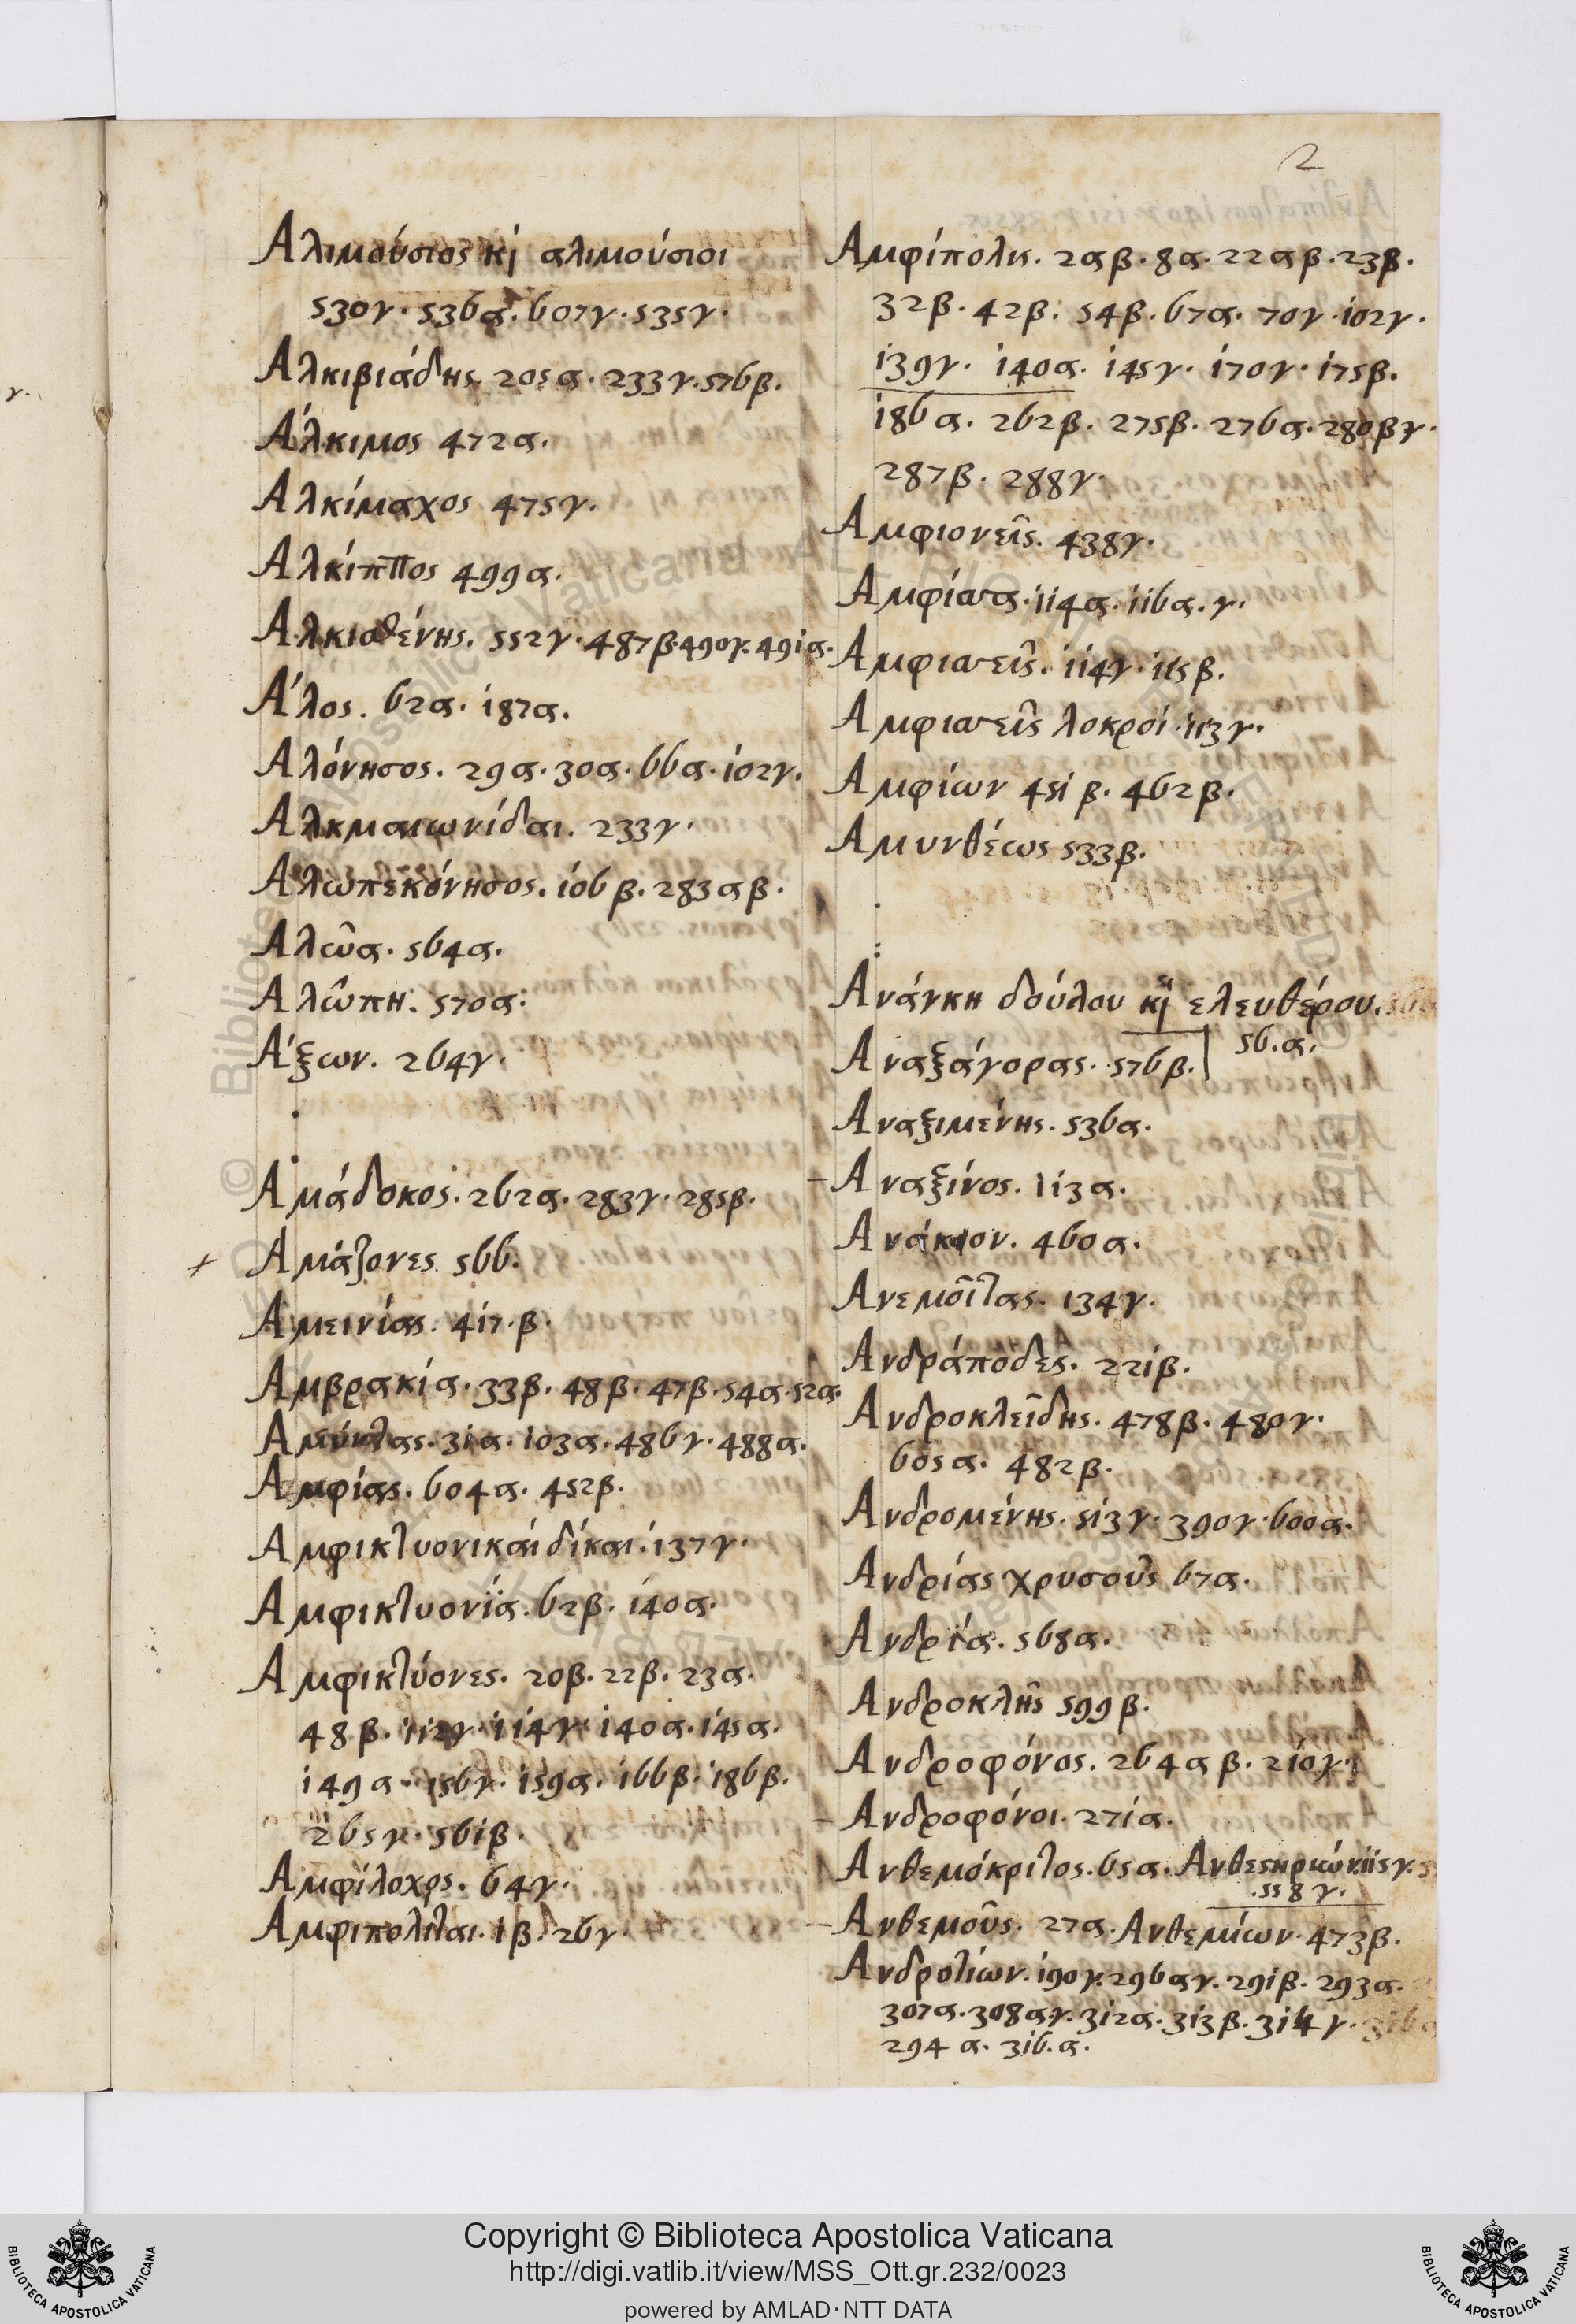 2
Αλιμούσιος κὶ αλιμούσιοι
530γ. 536α. 607γ. 535γ.
Αλκιβιάδης. 205α. 233γ. 576β.
Άλκιμος 472α.
Αλκίμαχος 475γ.
Αλκίππος 499α.
Αλκισθένης. 552γ. 487β. 490γ. 491α.
Άλος. 62α. 187α.
Αλόνησος. 29α. 30α. 66α. 102γ.
Αλκμαιωνίδαι. 233γ.
Αλωπεκόνησος. 106β. 283αβ.
Αλῶα. 564α.
Αλῶπη. 570α:
Άξων. 264γ.
Αμάδοκος. 262α. 283γ. 285β.
+ Αμάζονες 566.
Αμεινίας. 417.β.
Αμβρακία. 33β. 48β. 47β. 54α. 52α.
Αμύντας. 31α. 103α. 486γ. 488α.
Αμφίας. 604α. 452β.
Αμφικτυονικαί δίκαι. 137γ.
Αμφικτυονία. 62β. 140α.
Αμφικτύονες. 20β. 22β. 23α.
48β. 112γ. 114γ. 140α. 145α.
149α. 156γ. 159α. 166β. 186β.
265γ. 561β.
Αμφίλοχος. 64γ.
Αμφιπολίται. 1β. 26γ.
Αμφίπολις. 2αβ. 8α. 22αβ. 23β.
32β. 42β. 54β. 67α. 70γ. 102γ.
139γ. 140α. 145γ. 170γ. 175β.
186α. 262β. 275β. 276α. 280βγ.
287β. 288γ.
Αμφιονεῖς. 438γ.
Αμφίσσα. 114α. 116α.γ.
Αμφισσεῖς. 114γ. 115β.
Αμφισσεῖς λοκροί. 113γ.
Αμφίων 451β. 462β.
Αμυνθέως 533β.
Ανάνκη δούλου κὶ ελευθέρου.
56.α.
Αναξάγορας. 576β.
Αναξιμένης. 536α.
– Αναξίνος. 113α.
Ανάκιον. 460α.
Ανεμοῖτας. 134γ.
Ανδράποδες. 221β.
Ανδροκλεῖδης. 478β. 480γ.
605α. 482β.
Ανδρομένης. 513γ. 390γ. 600α.
Ανδρίας χρυσοῦς 67α.
Ανδρία. 568α.
Ανδροκλῆς 599β.
Ανδροφόνος. 264αβ. 210γ.
– Ανδροφόνοι. 271α.
Ανθεμόκριτος. 65α. Ανθεστηριών. 115γ.
.558γ.
– Ανθεμοῦς. 27α. Ανθεμίων. 473β.
Ανδροτίων. 190γ. 296αγ. 291β. 293α.
307α. 308αγ. 312α. 313β. 314γ.
294α. 316.α.
Copyright © Biblioteca Apostolica Vaticana
http://digi.vatlib.it/view/MSS_Ott.gr.232/0023
powered by AMLAD·NTT DATA
BIBLIOTECA APOSTOLICA VATICANA
BIBLIOTECA APOSTOLICA VATICANA